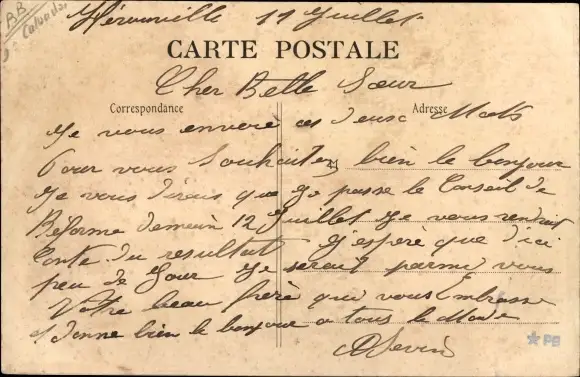 BB
Calvados
Hérouville 11 Juillet
CARTE POSTALE
Cher Belle Sœur
Correspondance
Adresse
Je vous envoie ces deusc Mots
Pour vous Souhaiter bien le bonjour
Je vous dirais que je passe le Conseil de
Réforme demain 12 Juillet Je vous rendrait
Conte du resultat J'espère que d'ici
peu de Jour Je serait parmi vous
Votre beau frère qui vous Embrasse
donne bien le bonjour a tous le Monde
Sevin
PG